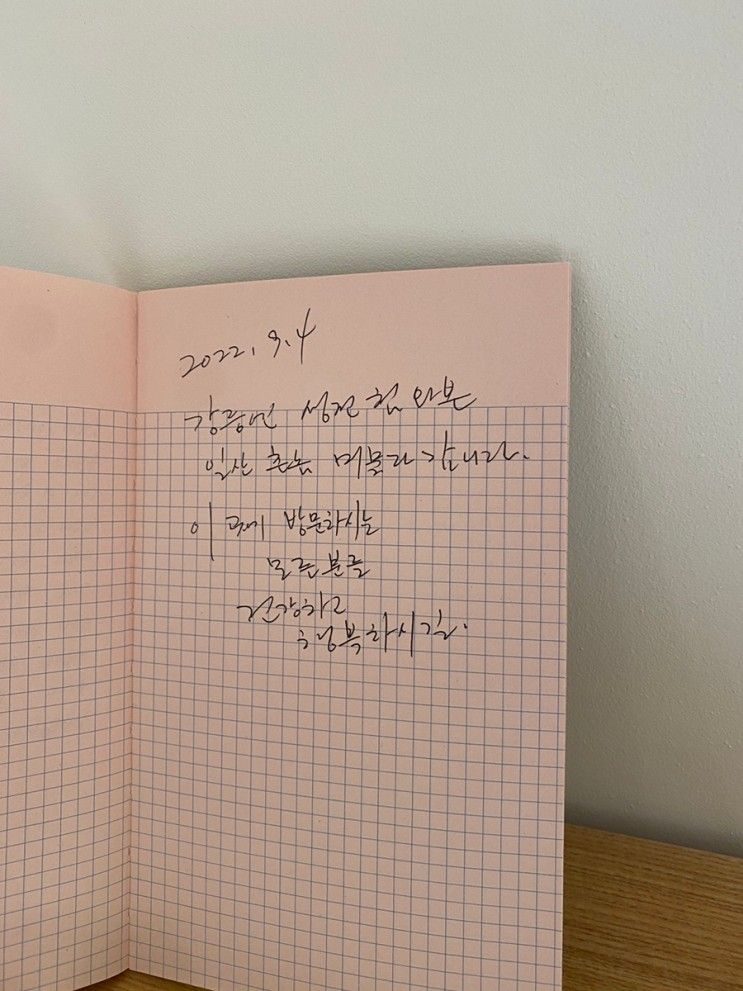 2022. 9. 4
일산 촌놈 머물다 갑니다.
이 곳에 방문하시는
모든분들
건강하고
행복하시길.